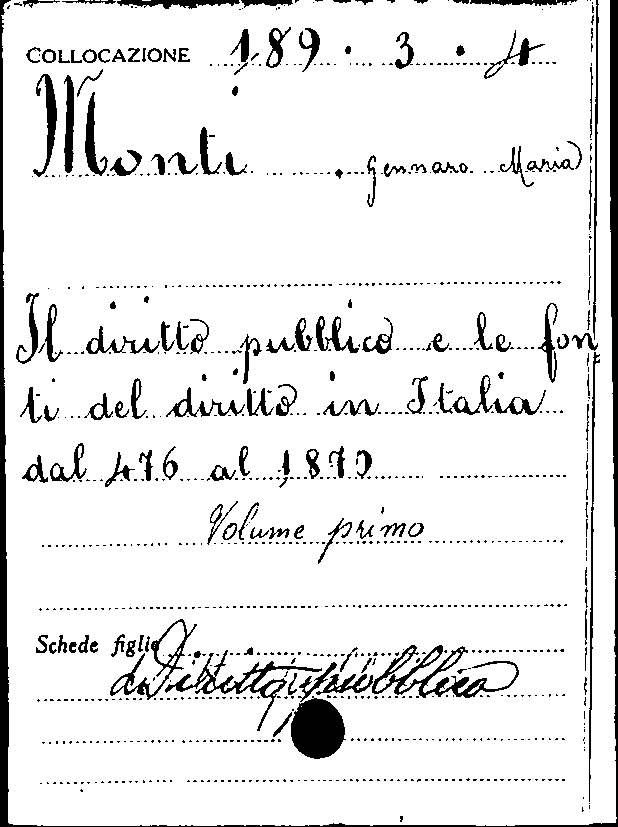 COLLOCAZIONE 189 . 3 . 4
Monti . Gennaro Maria
Il diritto pubblico e le fon=
ti del diritto in Italia
dal 476 al 1870
Volume primo
Schede figlie
pubblico